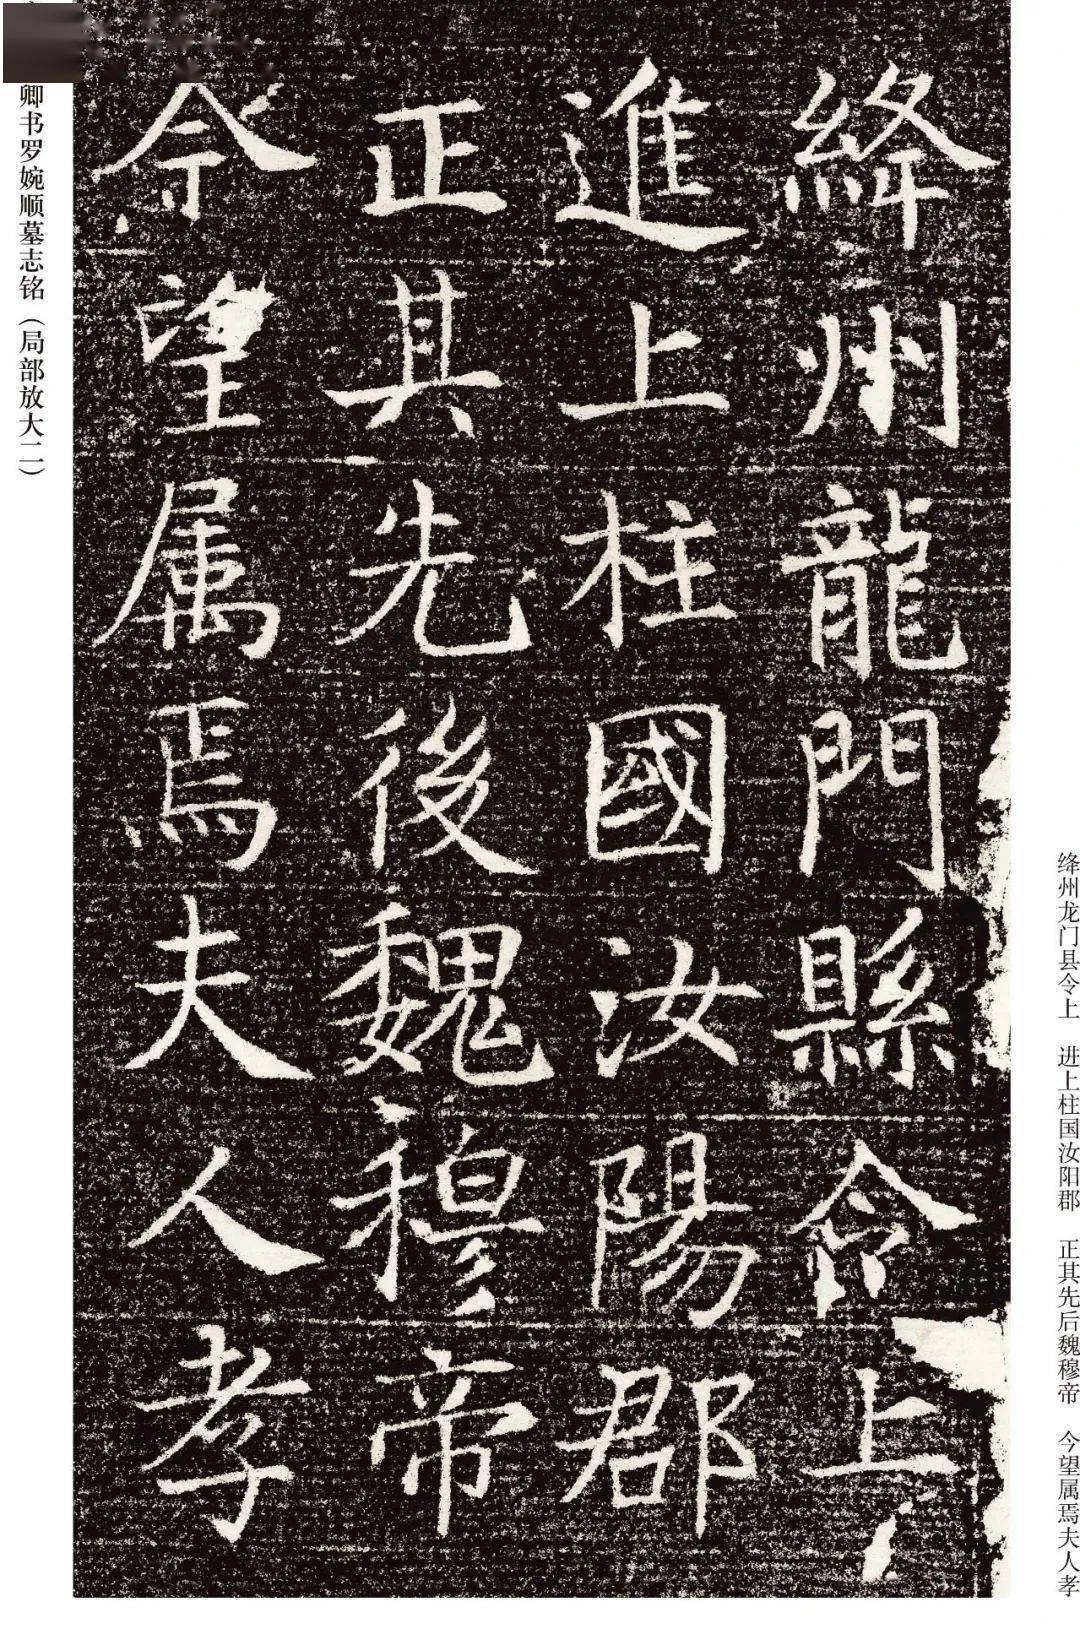 绛州龙门县令上　进上柱国汝阳郡　正其先后魏穆帝　今望属焉夫人孝
絳州龍門縣令上
進上柱國汝陽郡
正其先後魏穆帝
今望属焉夫人孝
卿书罗婉顺墓志铭（局部放大二）